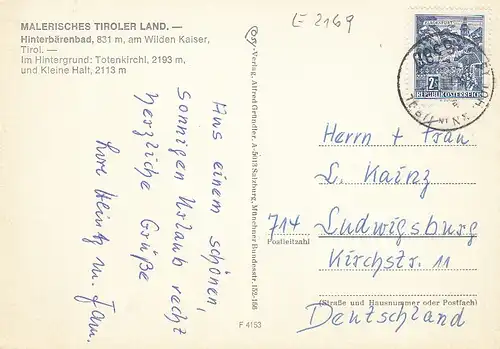 MALERISCHES TIROLER LAND. —
Hinterbärenbad, 831 m, am Wilden Kaiser,
Tirol. —
Im Hintergrund: Totenkirchl, 2193 m,
und Kleine Halt, 2113 m
E 2169
Aus einem schönen,
sonnigen Urlaub recht
herzliche Grüße
Lore Heintz m. Fam.
Cosy-Verlag, Alfred Gründler, A-5013 Salzburg, Münchner Bundesstr. 152-156
F 4153
2 S
REPUBLIK ÖSTERREICH
Herrn + Frau
L. Kainz
714 Ludwigsburg
Postleitzahl
Kirchstr. 11
(Straße und Hausnummer oder Postfach)
Deutschland